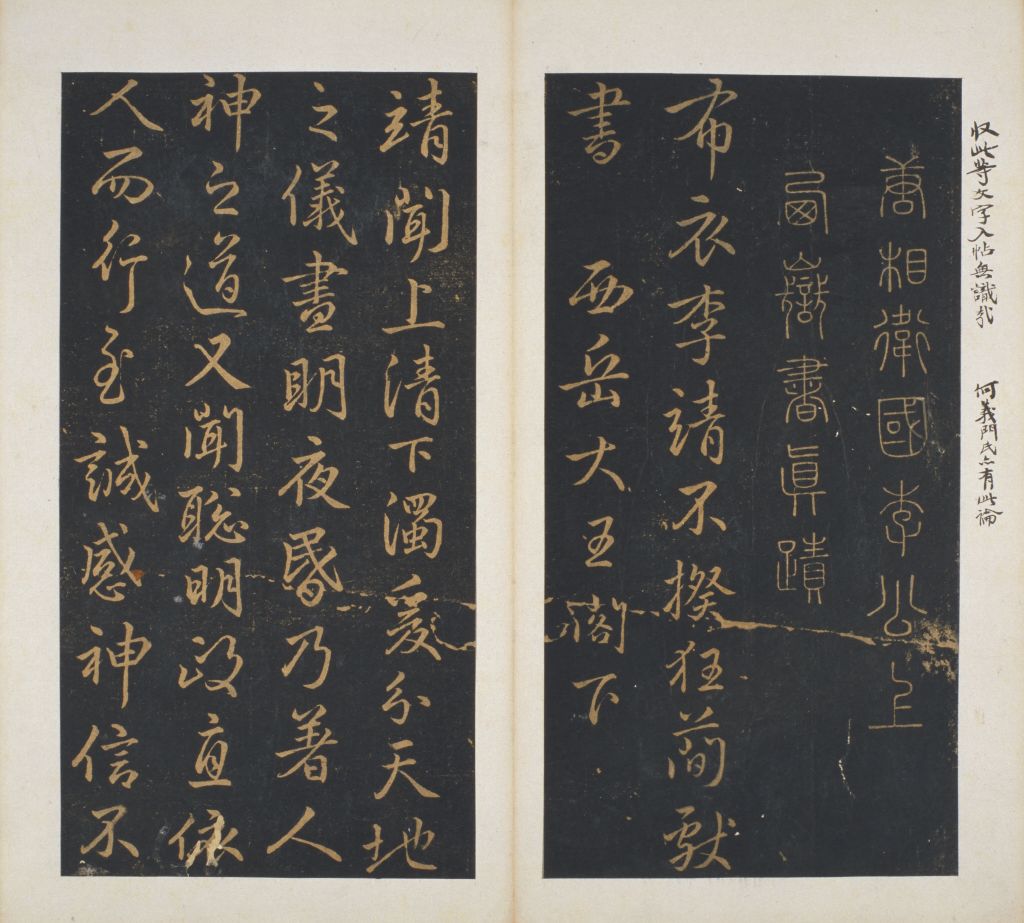 収此等文字入帖無識哉
何義門氏亦有此論
唐相衛國李公上
西嶽書真蹟
布衣李靖不揆狂簡獻
書　西岳大王閤下
靖聞上清下濁爰分天地
之儀晝明夜昏乃著人
神之道又聞聰明正直依
人而行至誠感神信不